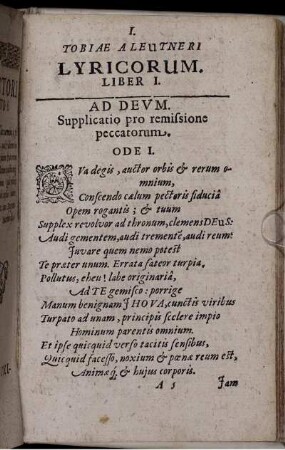 I.
TOBIAE ALEUTNERI
LYRICORUM.
LIBER I.
AD DEVM.
Supplicatio pro remissione
peccatorum.
ODE I.
QVa degis, auctor orbis & rerum o-
mnium,
Conscendo cælum pectoris fiduciâ
Opem rogantis; & tuum
Supplex revolvor ad thronum, clemens DEuS:
Audi gementem, audi trementē, audi reum!
Juvare quem nemo potest
Te præter unum. Errata fateor turpia,
Pollutus, eheu! labe originariâ,
Ad TE gemisco: porrige
Manum benignam JHOVA, cunctis viribus
Turpato ad unam, principis scelere impio
Hominum parentis omnium.
Et ipse quicquid verso tacitis sensibus,
Quicquid facesso, noxium & pœnæ reum est,
Animæq́; & hujus corporis.
A 5 Jam